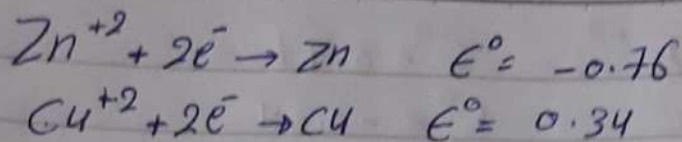 Zn⁺² + 2e⁻ → Zn E° = -0.76
Cu⁺² + 2e⁻ → Cu E° = 0.34